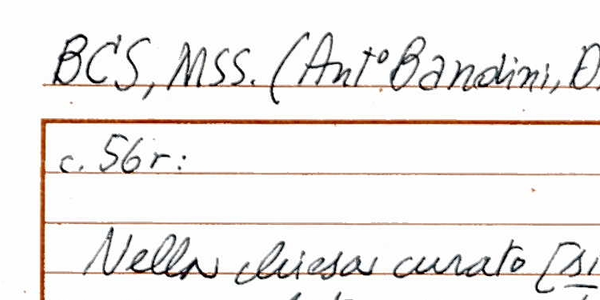 BCS, MSS. (Ant° Bandini, D
c. 56r:
Nella chiesa curato [si